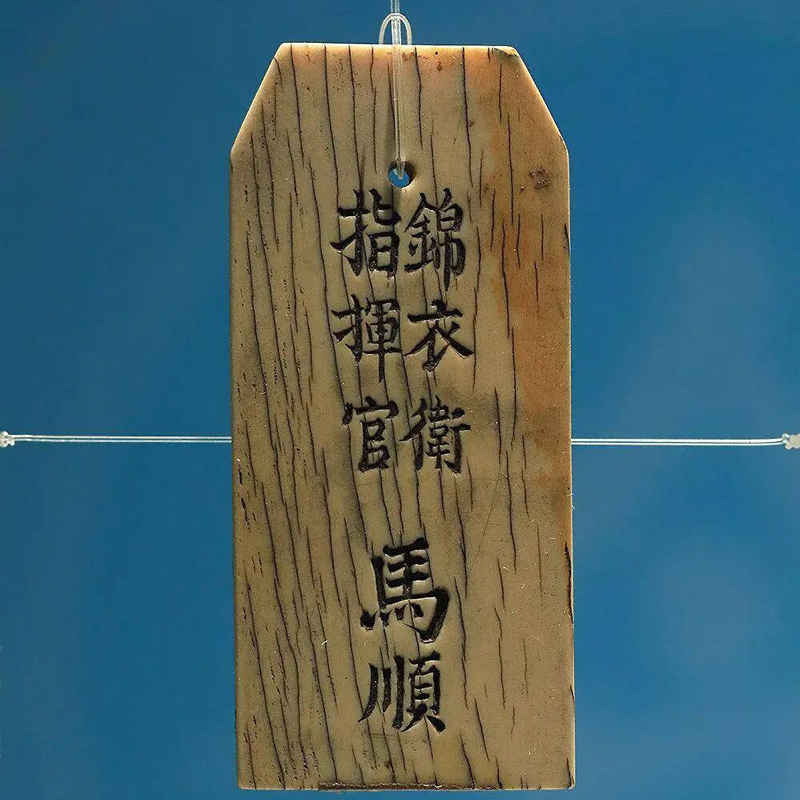 錦衣衛
指揮官
馬順